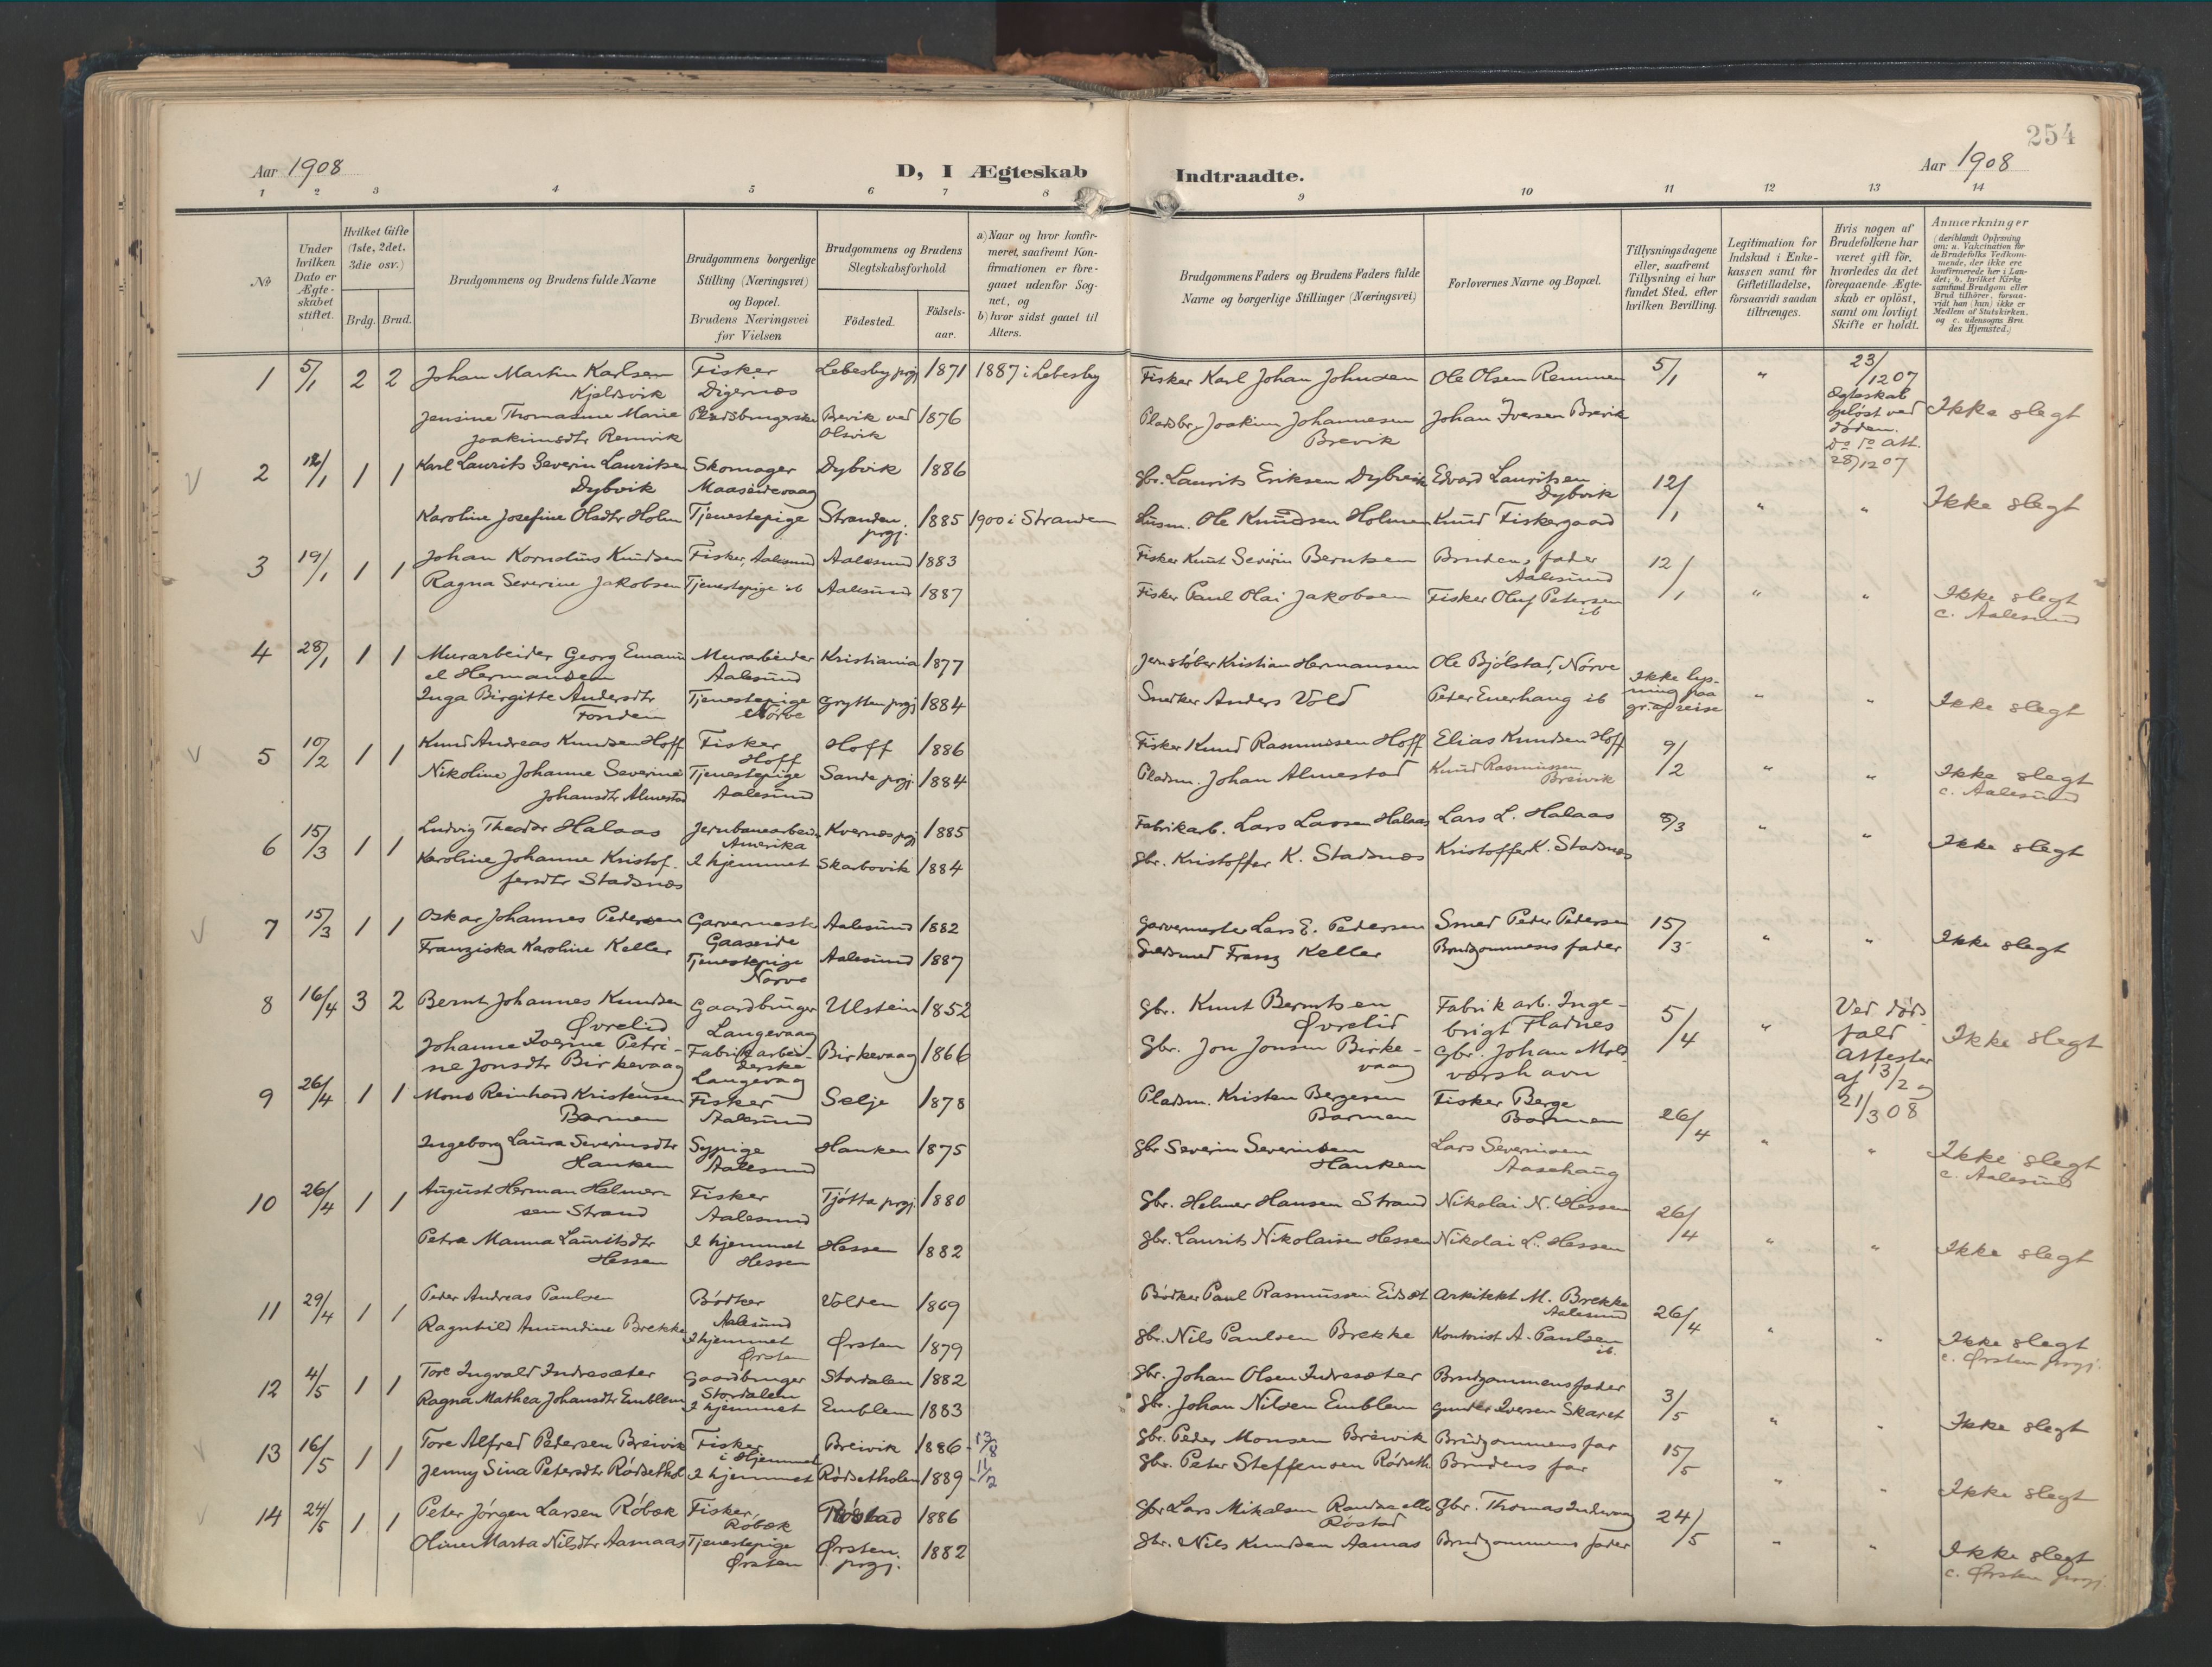 254
Aar 1908
D, I Ægteskab
Indtraadte.
Aar 1908
1 2 3 4 5 6 7 8 9 10 11 12 13 14
No
Under hvilken Dato er Ægteskabet stiftet.
Hvilket Gifte (1ste, 2det, 3die osv.)
Brdg. Brud.
Brudgommens og Brudens fulde Navne
Brudgommens borgerlige Stilling (Næringsvei) og Bopæl. Brudens Næringsvei før Vielsen
Brudgommens og Brudens Slegtskabsforhold
Fødested.
Fødsels-aar.
a) Naar og hvor konfirmeret, saafremt Konfirmationen er foregaaet udenfor Sognet, og
b) hvor sidst gaaet til Alters.
Brudgommens Faders og Brudens Faders fulde Navne og borgerlige Stillinger (Næringsvei)
Forlovernes Navne og Bopæl.
Tillysningsdagene eller, saafremt Tillysning ei har fundet Sted, efter hvilken Bevilling.
Legitimation for Indskud i Enkekassen samt for Giftetilladelse, forsaavidt saadan tiltrænges.
Hvis nogen af Brudefolkene har været gift før, hvorledes da det foregaaende Ægteskab er opløst, samt om lovligt Skifte er holdt.
Anmærkninger
(deriblandt Oplysning om: a. Vakcination for de Brudefolks Vedkommende, der ikke ere konfirmerede her i Landet; b. hvilket Kirkesamfund Brudgom eller Brud tilhører, forsaavidt han (hun) ikke er Medlem af Statskirken, og c. udensogns Brudes Hjemsted.)
1 5/1 2 2 Johan Martin Karlsen Kjeldsvik Fisker Digernæs Lebesby prgj 1871 1887 i Lebesby Fisker Karl Johan Johnsen Ole Olsen Remmen 5/1 " 23/12 07 Ægteskab opløst ved døden. Do do att. 28/12 07 Ikke slegt
Jensine Thomasine Marie Joakimsdtr Remvik Pladsbrugerske Brevik ved Olsvik 1876 Pladsbr. Joakim Johannesen Brevik Johan Iversen Brevik
2 12/1 1 1 Karl Laurits Severin Lauritsen Dybvik Skomager Maaseidevaag Dybvik 1886 Gbr. Laurits Eriksen Dybvik Edvard Lauritsen Dybvik 12/1 " " Ikke slegt
Karoline Josefine Olsdtr Holm Tjenestepige Stranden prgj. 1885 1900 i Stranden Husm. Ole Knudsen Holmen Knud Fiskergaard
3 19/1 1 1 Johan Kornelius Knudsen Fisker, Aalesund Aalesund 1883 Fisker Knut Severin Berntsen Brudens fader Aalesund 12/1 " " Ikke slegt c. Aalesund
Ragna Severine Jakobsen Tjenestepige ib Aalesund 1887 Fisker Paul Olai Jakobsen Fisker Oluf Petersen ib
4 28/1 1 1 Murarbeider Georg Emanuel Hermansen Murarbeider Aalesund Kristiania 1877 Jernstøber Kristian Hermansen Ole Bjølstad, Nørve Ikke lysning paa gr. af reise " " Ikke slegt
Inga Birgitte Andersdtr Fonden Tjenestepige Nørve Grytten prgj 1884 Snedker Anders Vold Peter Enerhaug ib
5 10/2 1 1 Knud Andreas Knudsen Hoff Fisker Hoff Hoff 1886 Fisker Knud Rasmussen Hoff Elias Knudsen Hoff 9/2 " " Ikke slegt c. Aalesund
Nikoline Johanne Severine Johansdtr Almestad Tjenestepige Aalesund Sande prgj. 1884 Pladsm. Johan Almestad Knud Rasmussen Breivik
6 15/3 1 1 Ludvig Theodor Halaas Jernbanearbeider Amerika Kvernes prgj 1885 Fabrikarb. Lars Larsen Halaas Lars L. Halaas 8/3 " " Ikke slegt
Karoline Johanne Kristoffersdtr Stadsnæs I hjemmet Skarbøvik 1884 Gbr. Kristoffer K. Stadsnæs Kristoffer K. Stadsnæs
7 15/3 1 1 Oskar Johannes Pedersen Garvermester Gaaseide Aalesund 1882 Garvermester Lars E. Pedersen Smed Peder Pedersen 15/3 " " Ikke slegt
Franziska Karoline Keller Tjenestepige Nørve Aalesund 1887 Guldsmed Franz Keller Brudgommens fader
8 16/4 3 2 Bernt Johannes Knudsen Øvrelid Gaardbruger Langevaag Ulstein 1852 Gbr. Knut Berntsen Øvrelid Fabrikarb. Ingebrigt Fladnes 5/4 " Ved dødsfald Attester af 13/2 og 21/3 08 Ikke slegt
Johanne Iverine Petrine Jonsdtr Birkevaag Fabrikarbeiderske Langevaag Birkevaag 1866 Gbr. Jon Jonsen Birkevaag Gbr. Johan Molværshavn
9 26/4 1 1 Mons Reinhard Kristensen Barmen Fisker Aalesund Selje 1878 Pladsm. Kristen Bergesen Barmen Fisker Berge Barmen 26/4 " " Ikke slegt c. Aalesund
Ingeborg Laura Severinsdtr Hanken Sypige Aalesund Hanken 1875 Gbr Severin Severinsen Hanken Lars Severinsen Aasehaug
10 26/4 1 1 August Herman Helmersen Strand Fisker Aalesund Tjøtta prgj. 1880 Gbr. Helmer Hansen Strand Nikolai N. Hessen 26/4 " " Ikke slegt
Petra Manna Lauritsdtr Hessen I hjemmet Hessen Hessen 1882 Gbr. Laurits Nikolaisen Hessen Nikolai L. Hessen
11 29/4 1 1 Peder Andreas Paulsen Bødker Aalesund Volden 1869 Bødker Paul Rasmussen Eidset Arkitekt M. Brekke Aalesund 26/4 " " Ikke slegt c. Ørsten prgj.
Ragnhild Amundine Brekke I hjemmet Ørsten Ørsten 1879 Gbr. Nils Paulsen Brekke Kontorist A. Paulsen ib.
12 4/5 1 1 Tore Ingvald Indresæter Gaardbruger Stordalen Stordalen 1882 Gbr. Johan Olsen Indresæter Brudgommens fader 3/5 " " Ikke slegt
Ragna Mathea Johansdtr Emblem I hjemmet Emblem 1883 Gbr. Johan Nilsen Emblem Gunder Iversen Skaret
13 16/5 1 1 Tore Alfred Pedersen Breivik Fisker i Hjemmet Breivik 1886 13/8 Gbr. Peder Monsen Breivik Brudgommens far 15/5 " " Ikke slegt
Jenny Sina Petersdtr Rødsethol I hjemmet Rødsetholen 1889 11/2 Gbr. Peter Steffensen Rødseth Brudens far
14 24/5 1 1 Peter Jørgen Larsen Røbæk Fisker, Røbæk Røstad 1886 Gbr Lars Mikalsen Røstad Gbr. Thomas 24/5 " " Ikke slegt c. Ørsten prgj.
Oline Marta Nilsdtr Aamaas Tjenestepige Ørsten Ørsten prgj. 1882 Gbr. Nils Knudsen Aamas Brudgommens fader